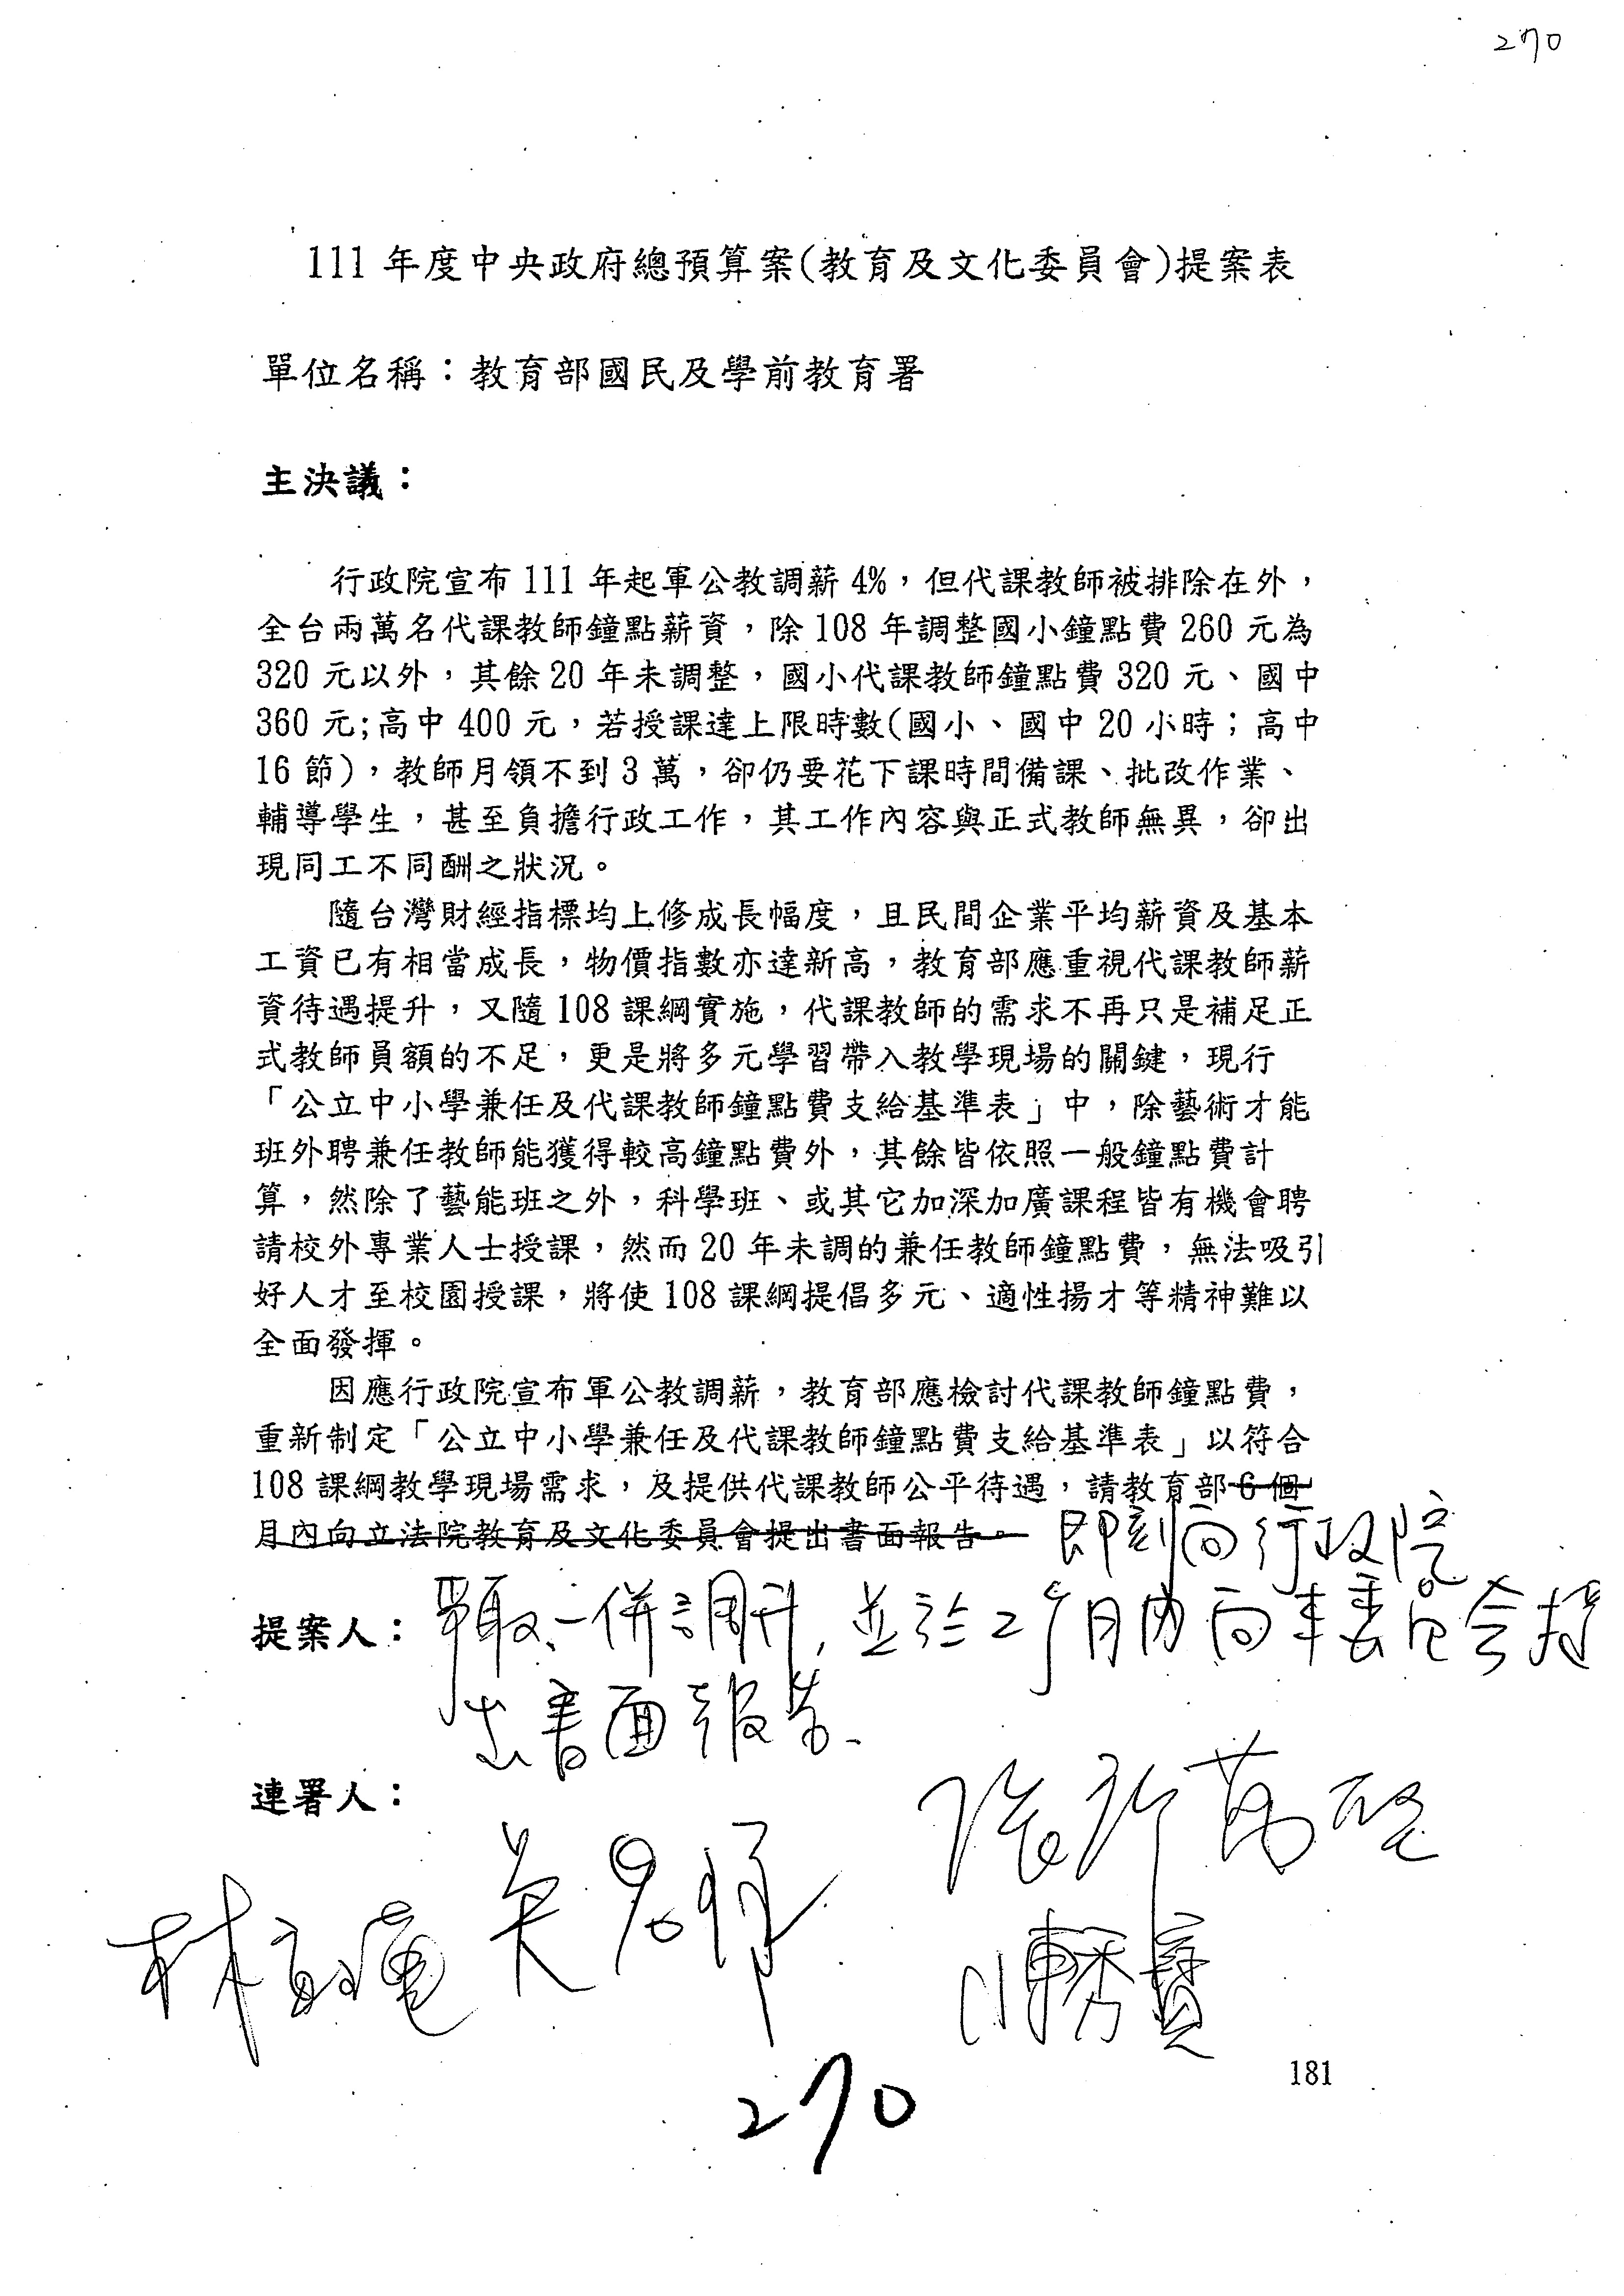 270
111 年度中央政府總預算案(教育及文化委員會)提案表
單位名稱：教育部國民及學前教育署
主決議：
行政院宣布 111 年起軍公教調薪 4%，但代課教師被排除在外，
全台兩萬名代課教師鐘點薪資，除 108 年調整國小鐘點費 260 元為
320 元以外，其餘 20 年未調整，國小代課教師鐘點費 320 元、國中
360 元;高中 400 元，若授課達上限時數(國小、國中 20 小時；高中
16 節)，教師月領不到 3 萬，卻仍要花下課時間備課、批改作業、
輔導學生，甚至負擔行政工作，其工作內容與正式教師無異，卻出
現同工不同酬之狀況。
隨台灣財經指標均上修成長幅度，且民間企業平均薪資及基本
工資已有相當成長，物價指數亦達新高，教育部應重視代課教師薪
資待遇提升，又隨 108 課綱實施，代課教師的需求不再只是補足正
式教師員額的不足，更是將多元學習帶入教學現場的關鍵，現行
「公立中小學兼任及代課教師鐘點費支給基準表」中，除藝術才能
班外聘兼任教師能獲得較高鐘點費外，其餘皆依照一般鐘點費計
算，然除了藝能班之外，科學班、或其它加深加廣課程皆有機會聘
請校外專業人士授課，然而 20 年未調的兼任教師鐘點費，無法吸引
好人才至校園授課，將使 108 課綱提倡多元、適性揚才等精神難以
全面發揮。
因應行政院宣布軍公教調薪，教育部應檢討代課教師鐘點費，
重新制定「公立中小學兼任及代課教師鐘點費支給基準表」以符合
108 課綱教學現場需求，及提供代課教師公平待遇，請教育部 6 個
月內向立法院教育及文化委員會提出書面報告。 即刻向行政院
提案人： 爭取一併調升，並於2個月內向本委員會提
出書面報告
連署人：
林 吳思瑤 張廖萬堅
陳秀寳
270
181